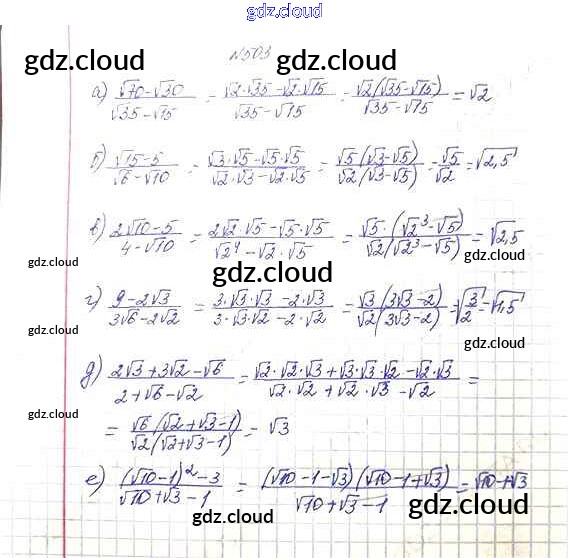 gdz.cloud
gdz.cloud №503 gdz.cloud
а) (√70-√30)/(√35-√15) = (√2·√35-√2·√15)/(√35-√15) = (√2(√35-√15))/(√35-√15) = √2
б) (√15-5)/(√6-√10) = (√3·√5-√5·√5)/(√2·√3-√2·√5) = (√5(√3-√5))/(√2(√3-√5)) = √5/√2 = √2,5
в) (2√10-5)/(4-√10) = (2√2·√5-√5·√5)/(√2⁴-√2·√5) = (√5·(√2³-√5))/(√2(√2³-√5)) = √2,5
gdz.cloud gdz.cloud gdz.cloud
г) (9-2√3)/(3√6-2√2) = (3·√3·√3-2·√3)/(3·√3·√2-2·√2) = (√3(3√3-2))/(√2(3√3-2)) = √(3/2) = √1,5
gdz.cloud gdz.cloud
д) (2√3+3√2-√6)/(2+√6-√2) = (√2·√2·√3+√3·√3·√2-√2·√3)/(√2·√2+√2·√3-√2) =
gdz.cloud gdz.cloud
= (√6(√2+√3-1))/(√2(√2+√3-1)) = √3
е) ((√10-1)²-3)/(√10+√3-1) = ((√10-1-√3)(√10-1+√3))/(√10+√3-1) = √10-1-√3
gdz.cloud gdz.cloud
gdz.cloud